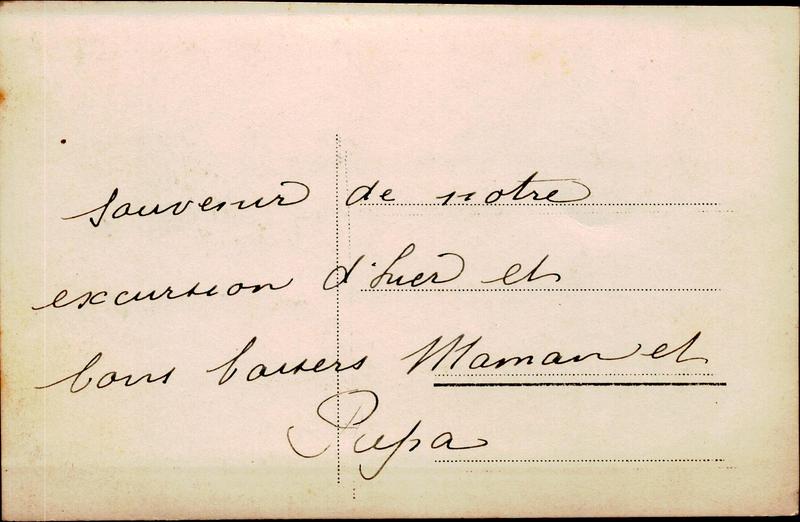 souvenir de notre
excursion d'hier et
bons baisers Maman et
Papa